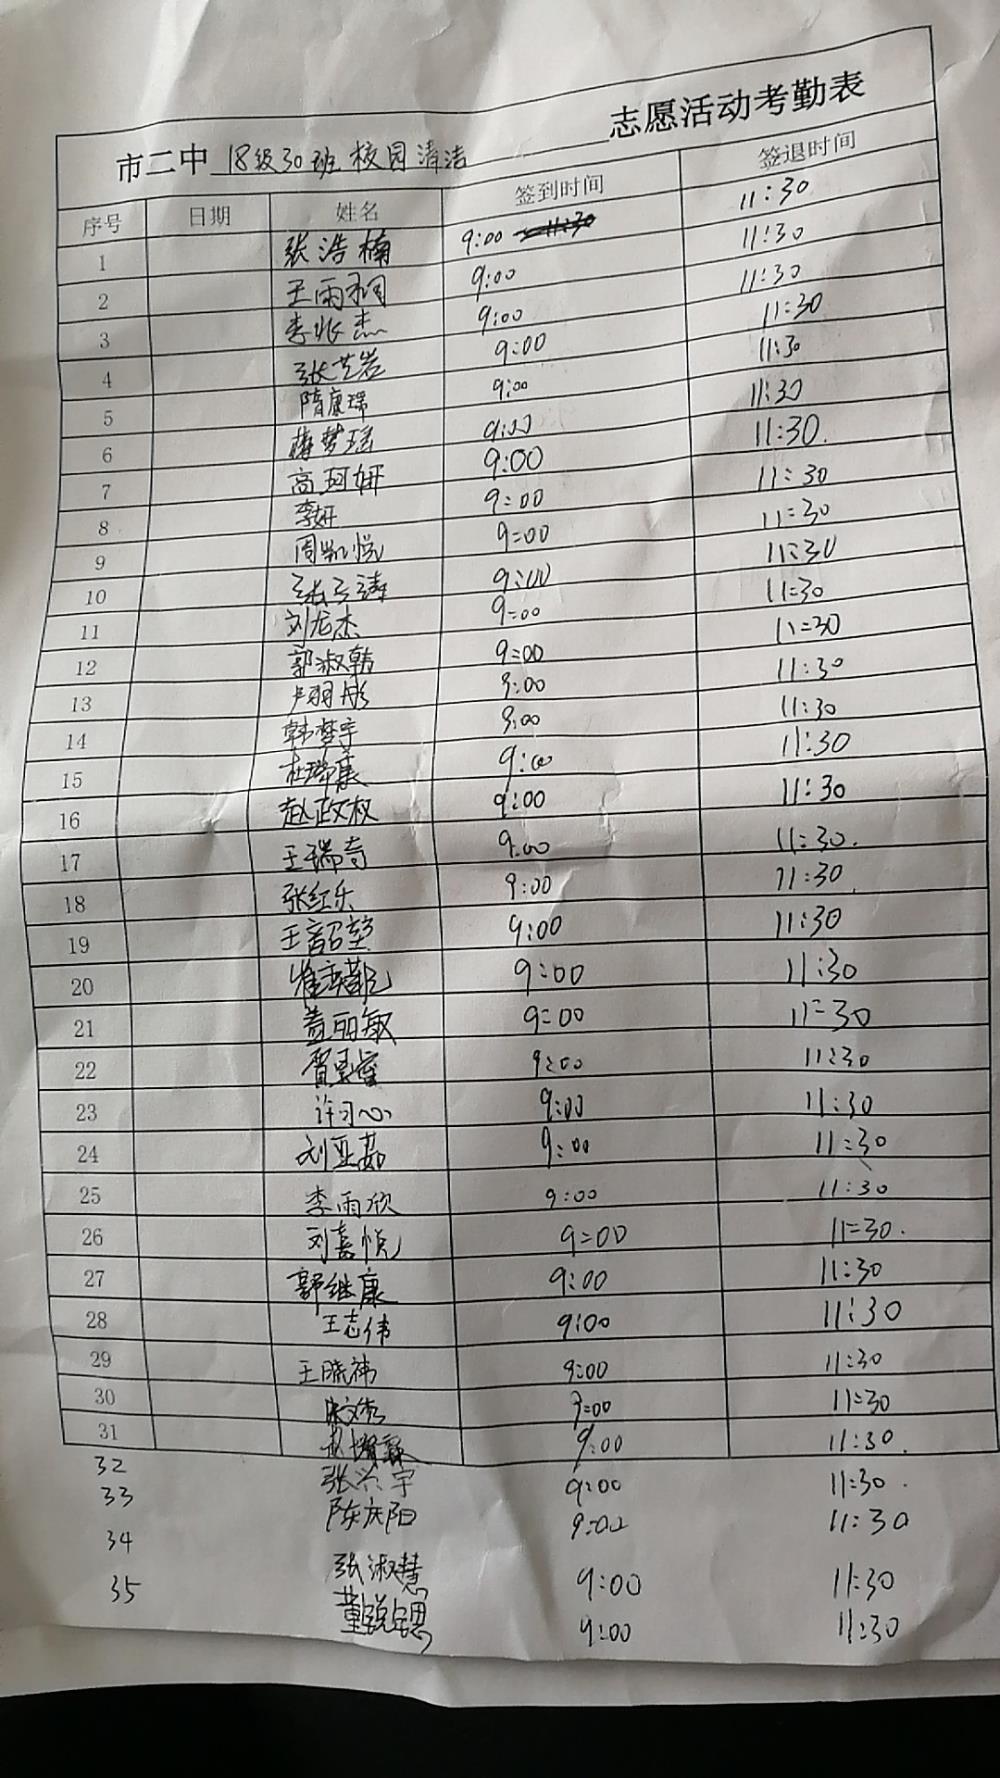 市二中 18级30班 校园清洁 志愿活动考勤表
序号 日期 姓名 签到时间 签退时间
1 张浩楠 9:00 11:30
2 王雨桐 9:00 11:30
3 李兆杰 9:00 11:30
4 张芝岩 9:00 11:30
5 隋康瑞 9:00 11:30
6 梦瑶 9:00 11:30
7 高珂妍 9:00 11:30
8 李妍 9:00 11:30
9 周凯悦 9:00 11:30
10 张弓涛 9:00 11:30
11 刘龙杰 9:00 11:30
12 郭淑韩 9:00 11:30
13 卢羽彤 9:00 11:30
14 韩梦宇 9:00 11:30
15 杜瑞康 9:00 11:30
16 赵政权 9:00 11:30
17 王瑞奇 9:00 11:30
18 张红乐 9:00 11:30
19 王韶堃 9:00 11:30
20 9:00 11:30
21 盖丽敏 9:00 11:30
22 9:00 11:30
23 许可心 9:00 11:30
24 刘亚茹 9:00 11:30
25 李雨欣 9:00 11:30
26 刘嘉悦 9:00 11:30
27 郭继康 9:00 11:30
28 王志伟 9:00 11:30
29 王晓祎 9:00 11:30
30 宋文秀 9:00 11:30
31 9:00 11:30
32 张兴宇 9:00 11:30
33 陈庆阳 9:00 11:30
34 张淑慧 9:00 11:30
35 董锐思 9:00 11:30